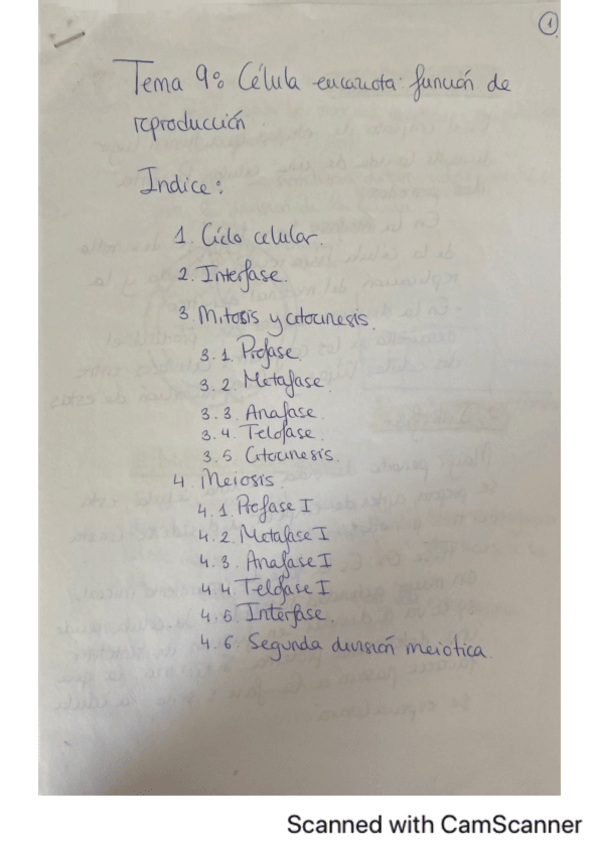 1
Tema 9: Célula eucariota: función de
reproducción
Indice:
1. Ciclo celular.
2. Interfase.
3 Mitosis y citocinesis.
3.1. Profase.
3.2. Metafase.
3.3. Anafase.
3.4. Telofase.
3.5 Citocinesis.
4. Meiosis.
4.1 Profase I
4.2 Metafase I
4.3. Anafase I
4.4. Telofase I
4.5. Interfase.
4.6. Segunda división meiotica.
Scanned with CamScanner